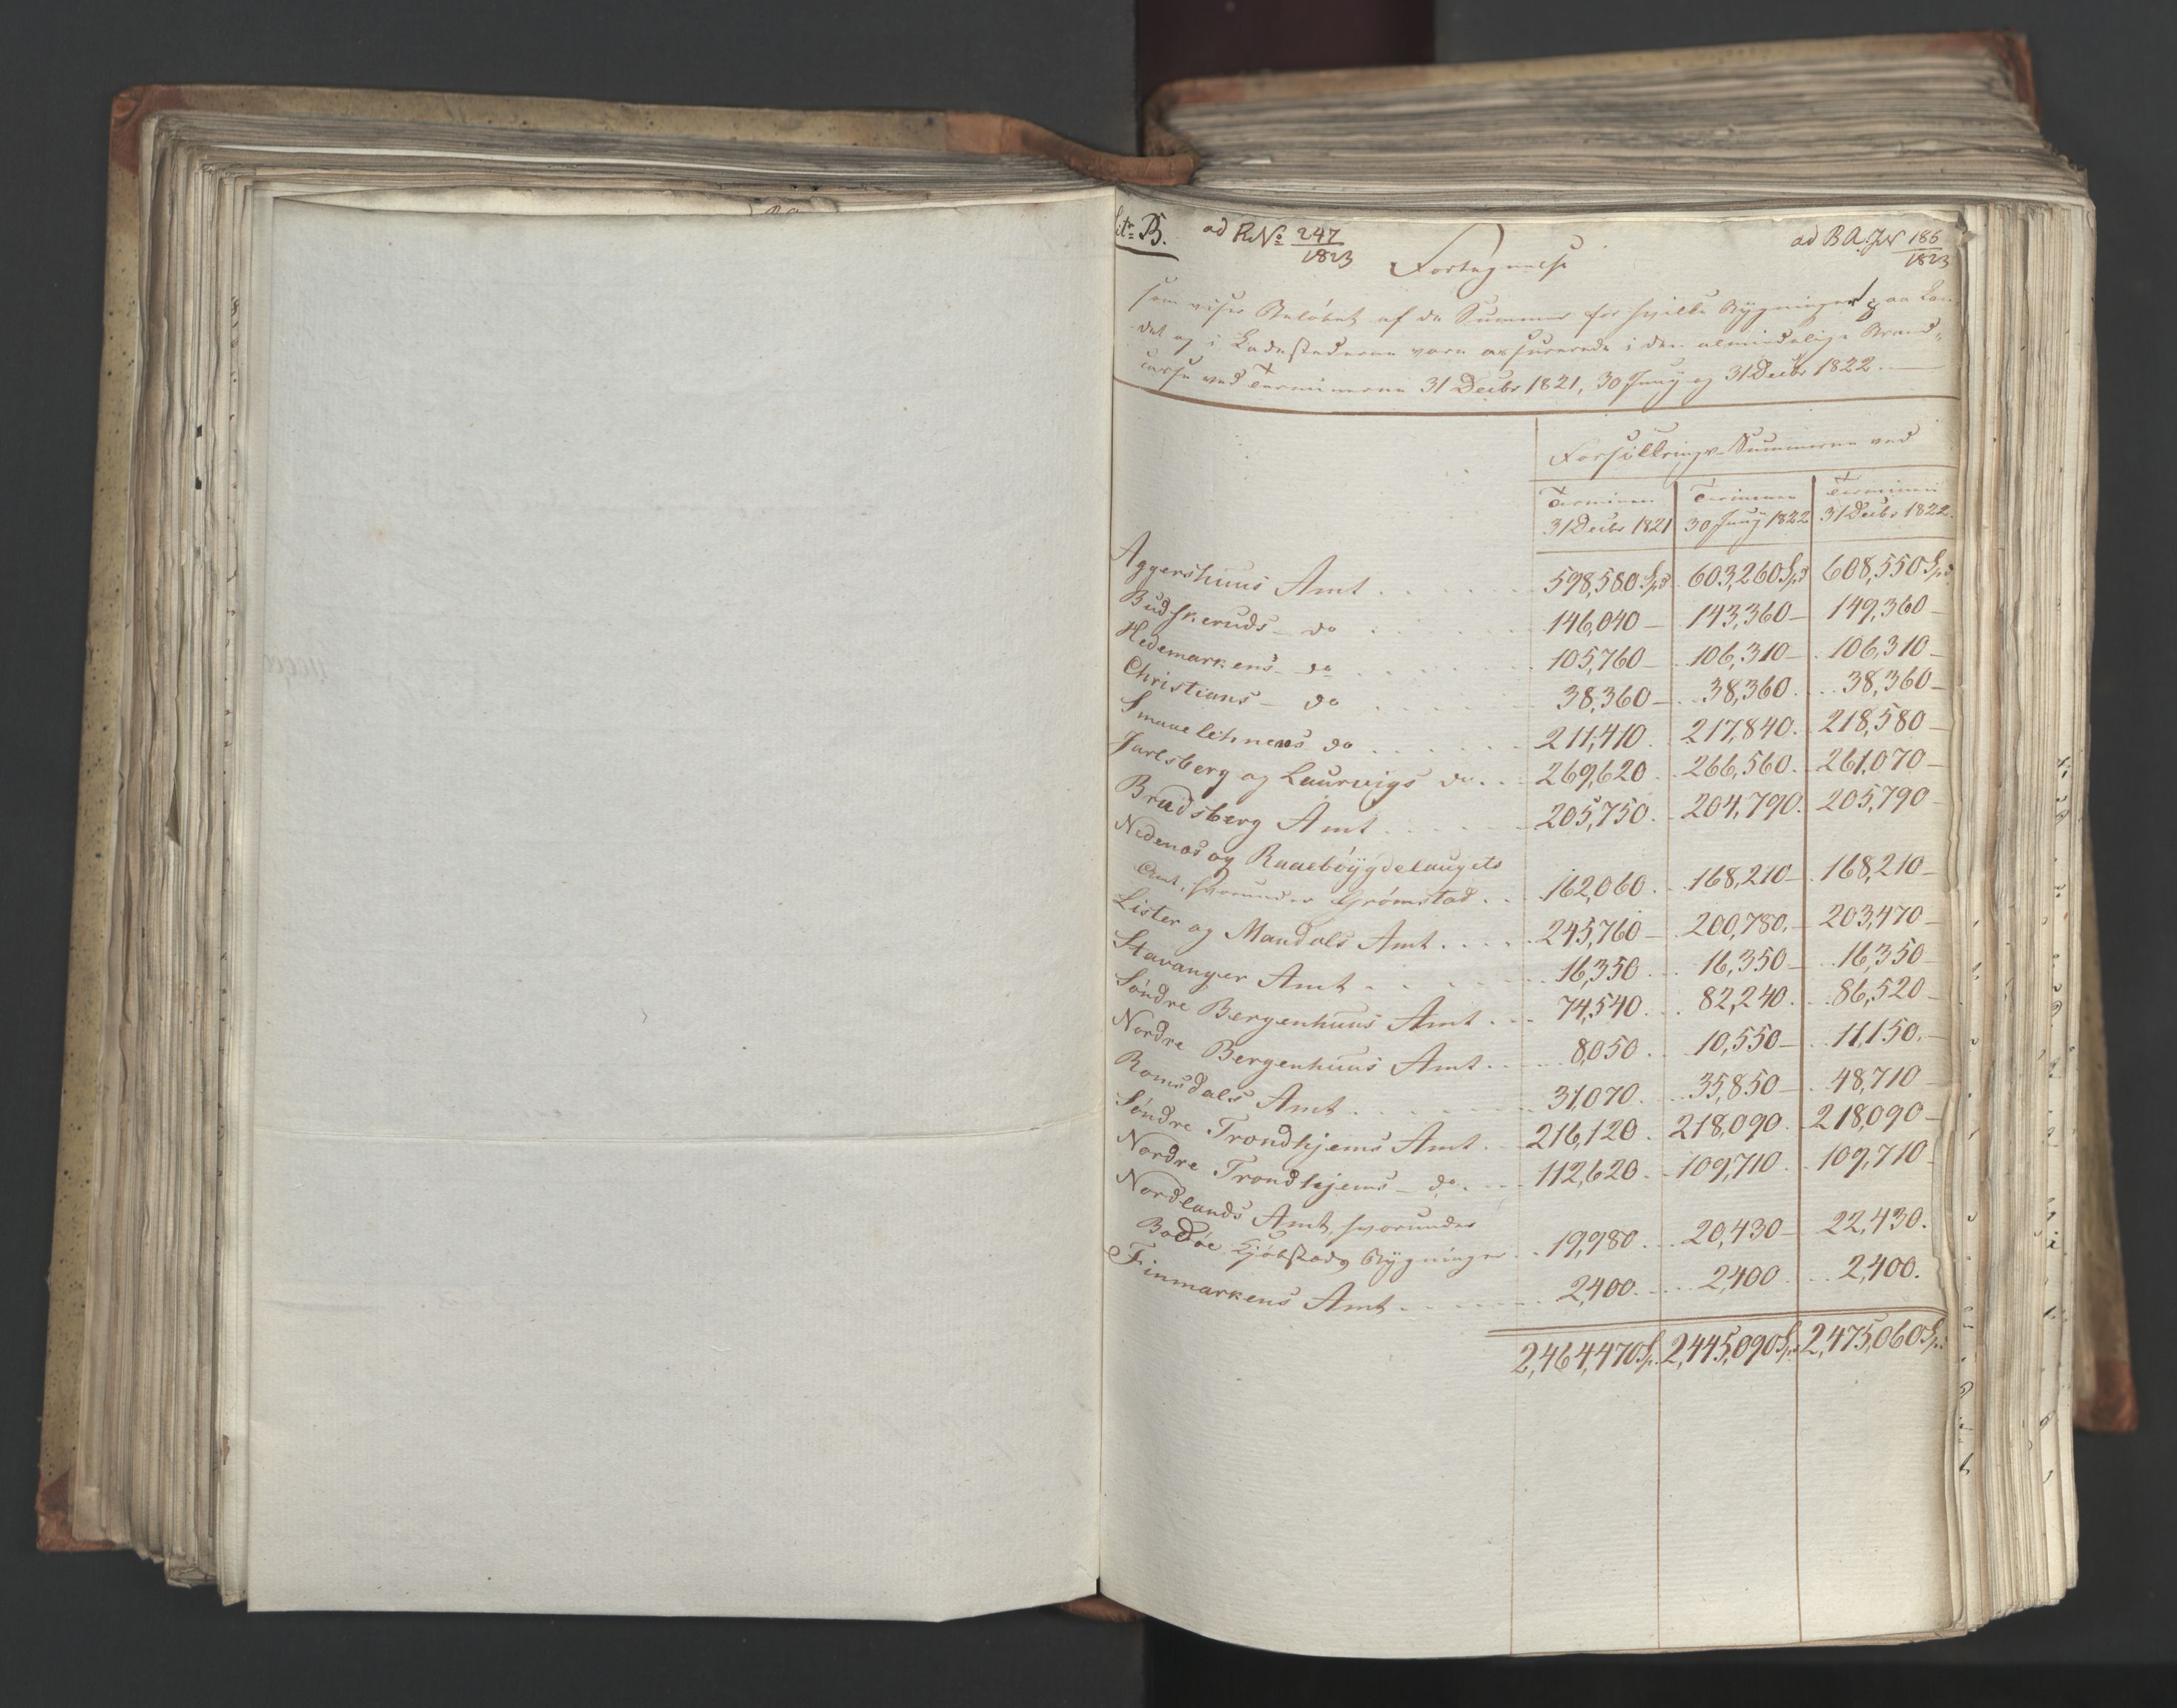 Litr B. ad R No 247/1823 ad B A J N 186/1823
Fortegnelse
som viser Beløbet af de Summer for hvilke Bygninger paa Lan-
det og i Ladestederne vare assurerede i den almindelige Brand-
casse ved Terminerne 31 Decbr 1821, 30 Juny og 31 Decbr 1822.
Forsikkrings-Summerne ved
Terminen Terminen Terminen
31 Decbr 1821 30 Juny 1822 31 Decbr 1822.
Aggershuus Amt 598,580 Spd 603,260 Spd 608,550 Spd
Budskeruds do 146,040 143,360 149,360
Hedemarkens do 105,760 106,310 106,310
Christians do 38,360 38,360 38,360
Smaalehnenes do 211,410 217,840 218,580
Jarlsberg og Laurvigs do 269,620 266,560 261,070
Bradsberg Amt 205,750 204,790 205,790
Nedenæs og Raaebøygdelaugets
Amt, hvorunder Grømstad 162,060 168,210 168,210
Lister og Mandals Amt 245,760 200,780 203,470
Stavanger Amt 16,350 16,350 16,350
Søndre Bergenhuus Amt 74,540 82,240 86,520
Nordre Bergenhuus Amt 8,050 10,550 11,150
Romsdals Amt 31,070 35,850 48,710
Søndre Trondhjems Amt 216,120 218,090 218,090
Nordre Trondhjems do 112,620 109,710 109,710
Nordlands Amt, hvorunder
Bodøe Kjøbstads Bygninger 19,980 20,430 22,430
Finmarkens Amt 2,400 2,400 2,400
2,464,470 Sp. 2,445,090 Sp. 2,475,060 Sp.